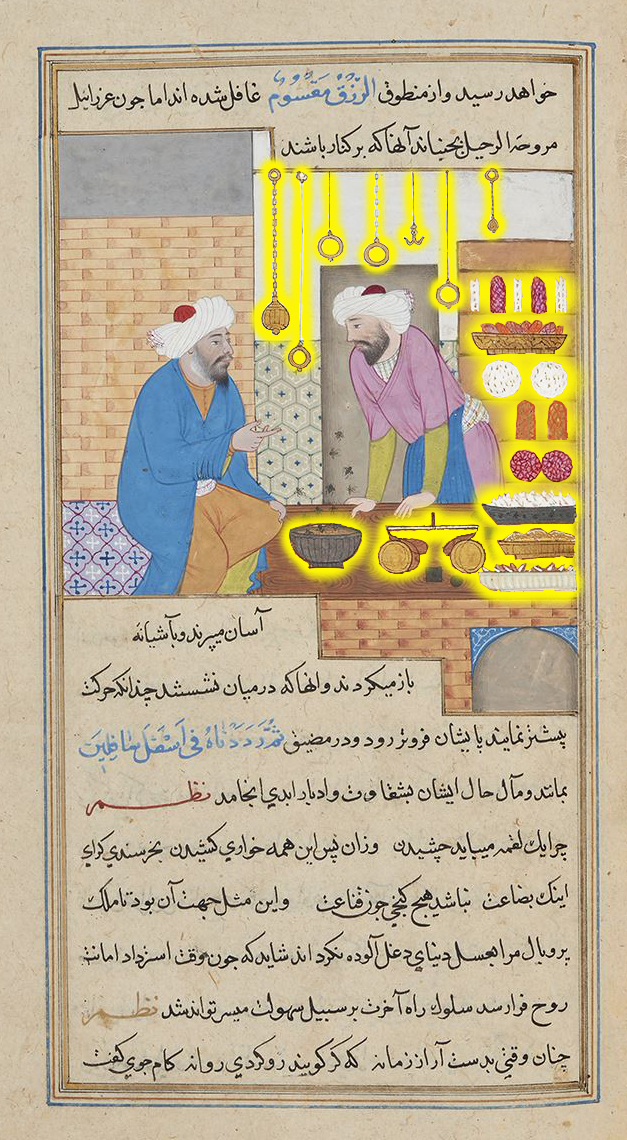 خواهد رسید و از منطوق الرِّزْقُ مَقْسُومٌ غافل شده اند اما جون عزرائیل
مروحهٔ الرحیل بجنباند آنها که بر کنار باشند
آسان میپرند و بآشیانه
باز میکردند و انها که در میان نشستند چندانکه حرکت
پیشتر نمایند پایشان فروتر رود و در مضیق ثُمَّ رَدَدْنَاهُ فِي أَسْفَلَ سَافِلِينَ
بمانند و مآل حال ایشان بشقاوت و ادبار ابدی انجامد نظم
چرا یك لقمه میباید چشیدن وزان پس این همه خواری کشیدن بخرسندی کرای
اینك بضاعت نباشد هیچ کنجی جون قناعت واین مثل جهت آن بود تا ملك
پر و بال مرا بعسل دنیای دغل آلوده نکرداند شاید که جون وقت استرداد امانت
روح فرا رسد سلوك راه آخرت بر سبیل سهولت میسر تواند شد نظم
چنان وقتی بدست آر از زمانه که کر کویند رو کردی روانه کام جوی کفت